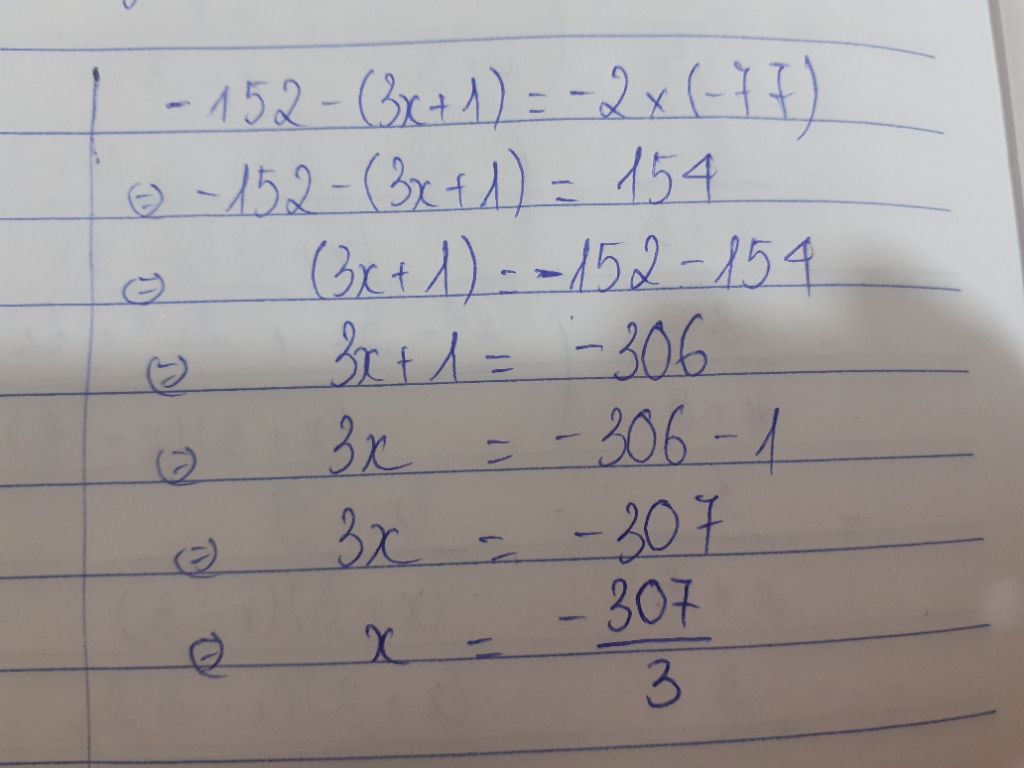 -152-(3x+1)=-2×(-77)
⇔ -152-(3x+1) = 154
⇔ (3x+1) = -152-154
⇔ 3x+1 = -306
⇔ 3x = -306-1
⇔ 3x = -307
⇔ x = -307/3